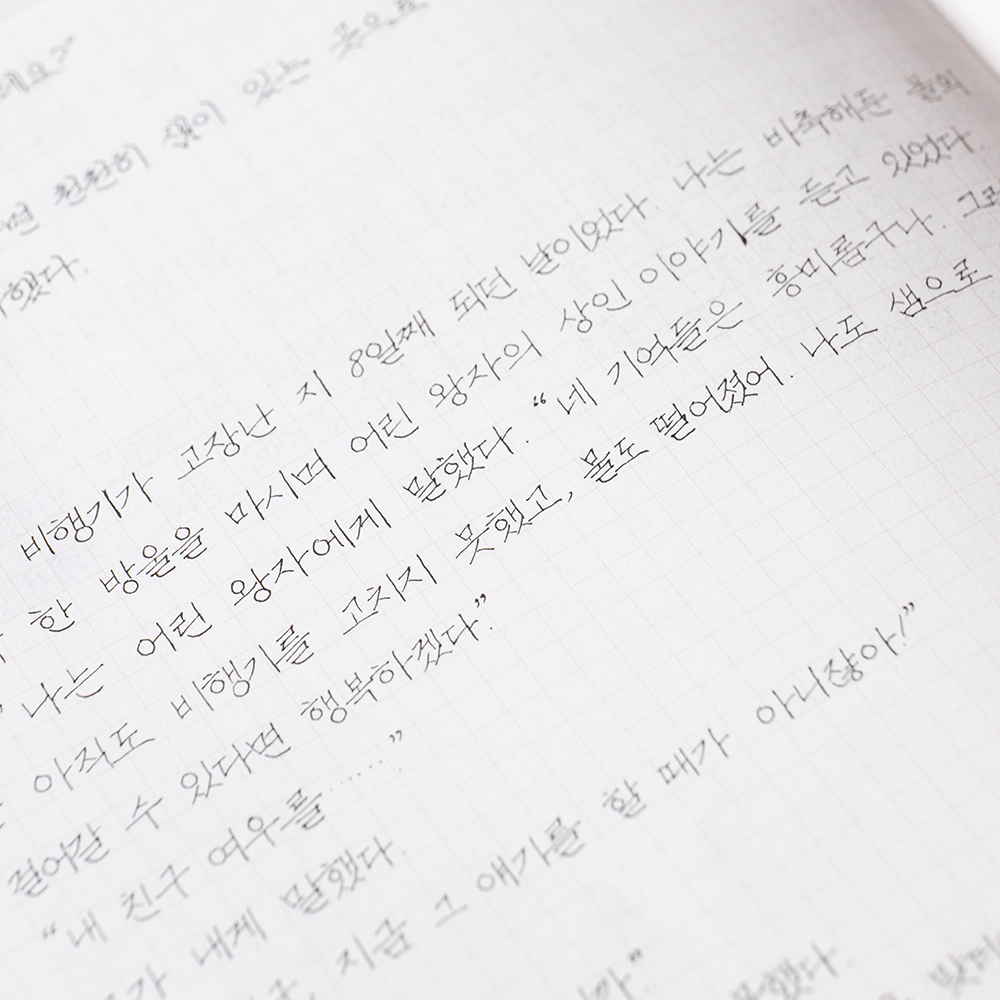 데요?"
면 천천히 샘이 있는 곳으로
했다.
비행기가 고장난 지 8일째 되던 날이었다. 나는 비축해둔 물의
한 방울을 마시며 어린 왕자의 상인 이야기를 듣고 있었다.
"나는 어린 왕자에게 말했다. "네 기억들은 흥미롭구나. 그런
아직도 비행기를 고치지 못했고, 물도 떨어졌어. 나도 샘으로
걸어갈 수 있다면 행복하겠다."
"내 친구 여우를……"
내게 말했다.
지금 그 얘기를 할 때가 아니잖아!"
까"
했다.